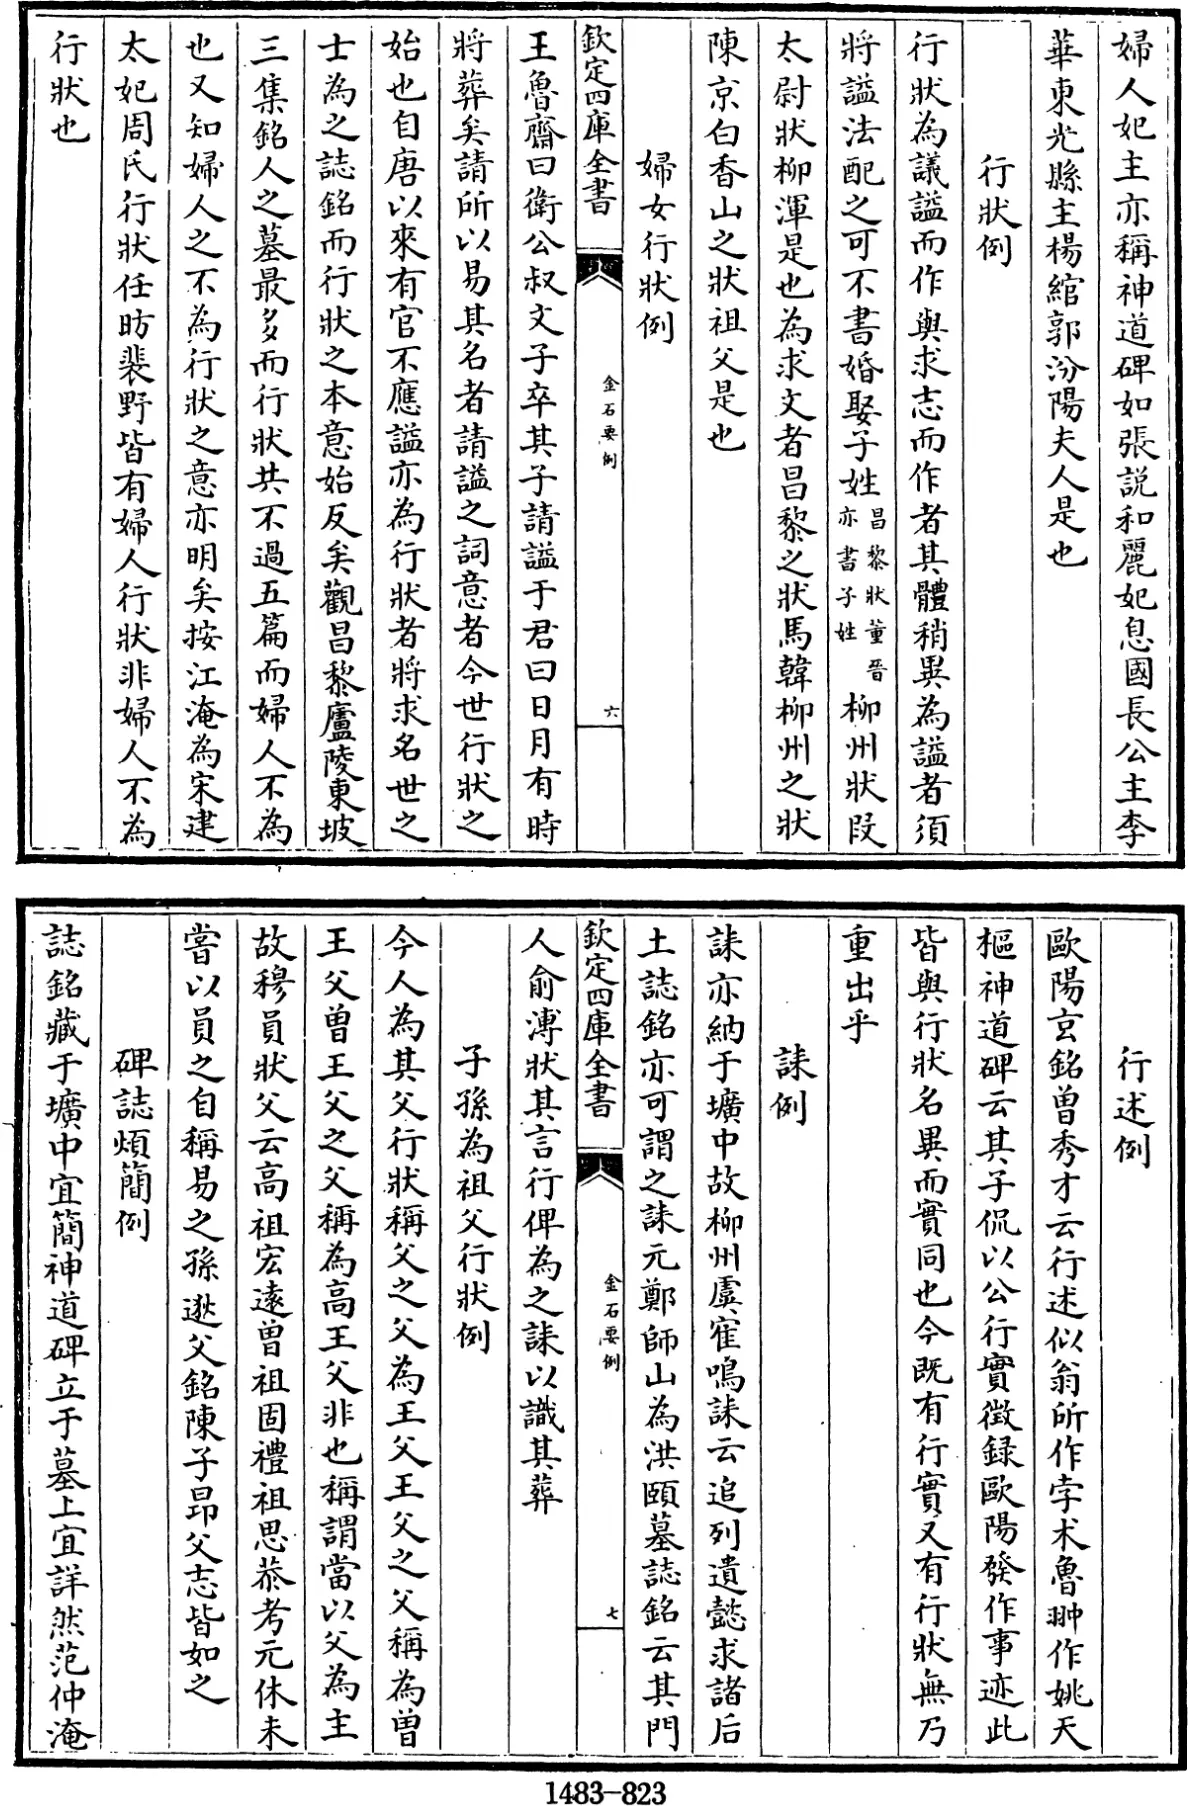 婦人妃主亦稱神道碑如張説和麗妃息國長公主李
華東光縣主楊綰郭汾陽夫人是也
行狀例
行狀為議謚而作與求志而作者其體稍異為謚者須
將謚法配之可不書婚娶子姓昌黎狀董晉亦書子姓柳州狀段
太尉狀柳渾是也為求文者昌黎之狀馬韓柳州之狀
陳京白香山之狀祖父是也
婦女行狀例
欽定四庫全書
金石要例
六
王魯齋曰衛公叔文子卒其子請謚于君曰日月有時
將葬矣請所以易其名者請謚之詞意者今世行狀之
始也自唐以來有官不應謚亦為行狀者將求名世之
士為之誌銘而行狀之本意始反矣觀昌黎廬陵東坡
三集銘人之墓最多而行狀共不過五篇而婦人不為
也又知婦人之不為行狀之意亦明矣按江淹為宋建
太妃周氏行狀任昉裴野皆有婦人行狀非婦人不為
行狀也
行述例
歐陽玄銘曾秀才云行述似翁所作孛术魯翀作姚天
樞神道碑云其子侃以公行實徵録歐陽發作事迹此
皆與行狀名異而實同也今既有行實又有行狀無乃
重出乎
誄例
誄亦納于壙中故柳州虞寉鳴誄云追列遺懿求諸后
土誌銘亦可謂之誄元鄭師山為洪頤墓誌銘云其門
欽定四庫全書
金石要例
七
人俞溥狀其言行俾為之誄以識其葬
子孫為祖父行狀例
今人為其父行狀稱父之父為王父王父之父稱為曾
王父曾王父之父稱為高王父非也稱謂當以父為主
故穆員狀父云高祖宏遠曾祖固禮祖思恭考元休未
嘗以員之自稱易之孫逖父銘陳子昂父志皆如之
碑誌煩簡例
誌銘藏于壙中宜簡神道碑立于墓上宜詳然范仲淹
1483-823